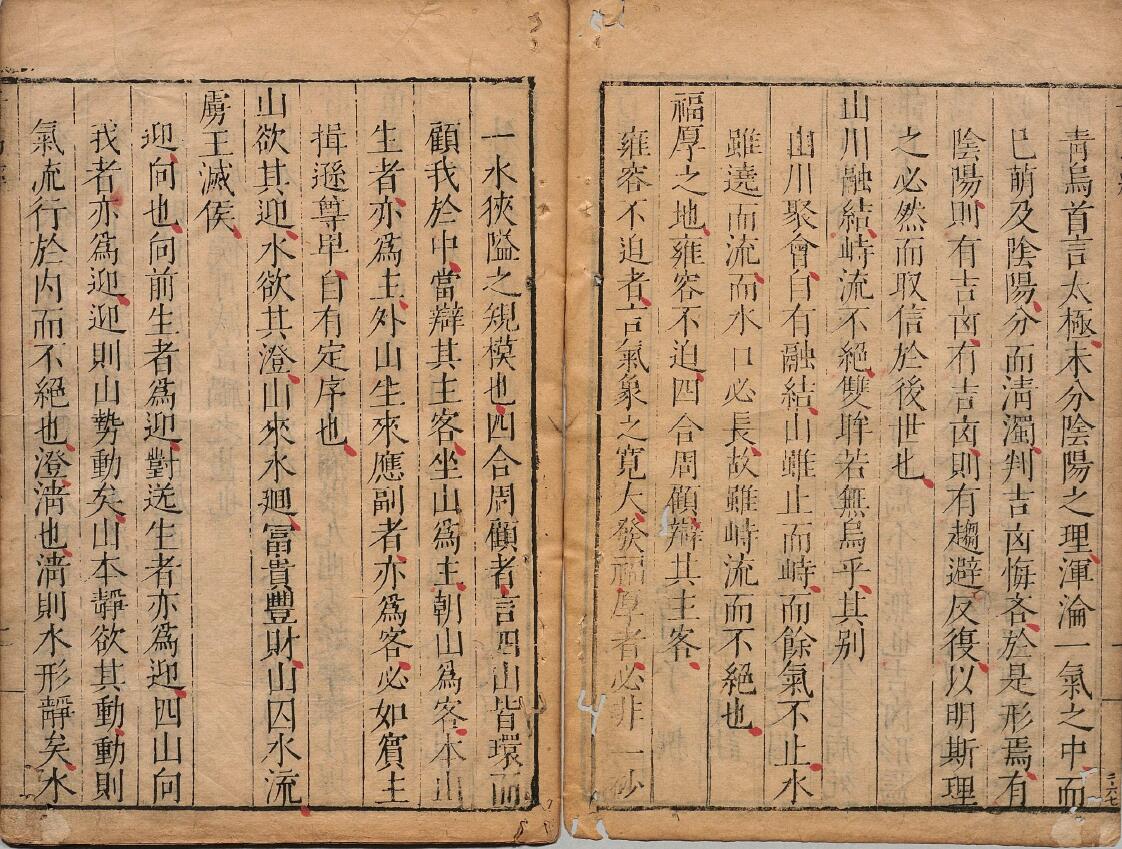 青烏首言太極未分陰陽之理渾淪一氣之中而
巳萌及陰陽分而淸濁判吉凶悔吝於是形焉有
陰陽則有吉凶有吉凶則有趨避反復以明斯理
之必然而取信於後世也
山川融結峙流不絕雙眸若無烏乎其别
山川聚會自有融結山雖止而峙而餘氣不止水
雖遶而流而水口必長故雖峙流而不絕也
福厚之地雍容不迫四合周顧辯其主客
雍容不迫者言氣象之寬大發福厚者必非一砂
一水狹隘之規模也四合周顧者言四山皆環而
顧我於中當辯其主客坐山爲主朝山爲客本山
生者亦爲主外山生來應副者亦爲客必如賓主
揖遜尊卑自有定序也
山欲其迎水欲其澄山來水廻富貴豐財山囚水流
虜王滅侯
迎向也向前生者爲迎對送生者亦爲迎四山向
我者亦爲迎迎則山勢動矣山本靜欲其動動則
氣流行於内而不絕也澄淸也淸則水形靜矣水